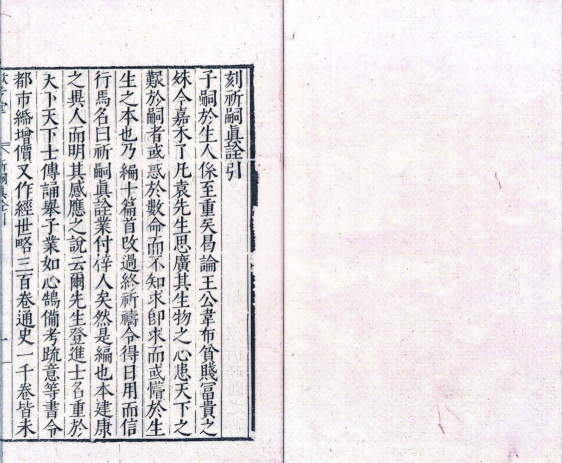 刻祈嗣真詮引
子嗣於生人係至重矣昜論王公韋布貧賤冨貴之
殊令嘉禾了凡袁先生思廣其生物之心患天下之
艱於嗣者或惑於數命而不知求即求而或懵於生
生之本也乃編十篇首改過終祈禱令得日用而信
行焉名曰祈嗣眞詮業付倅人矣然是編也本建康
之異人而明其感應之說云爾先生登進士名重於
天下天下士傳誦舉子業如心鵠備考疏意等書令
都市緡增價又作經世略三百卷通史一千卷皆未
祈嗣真詮引
一